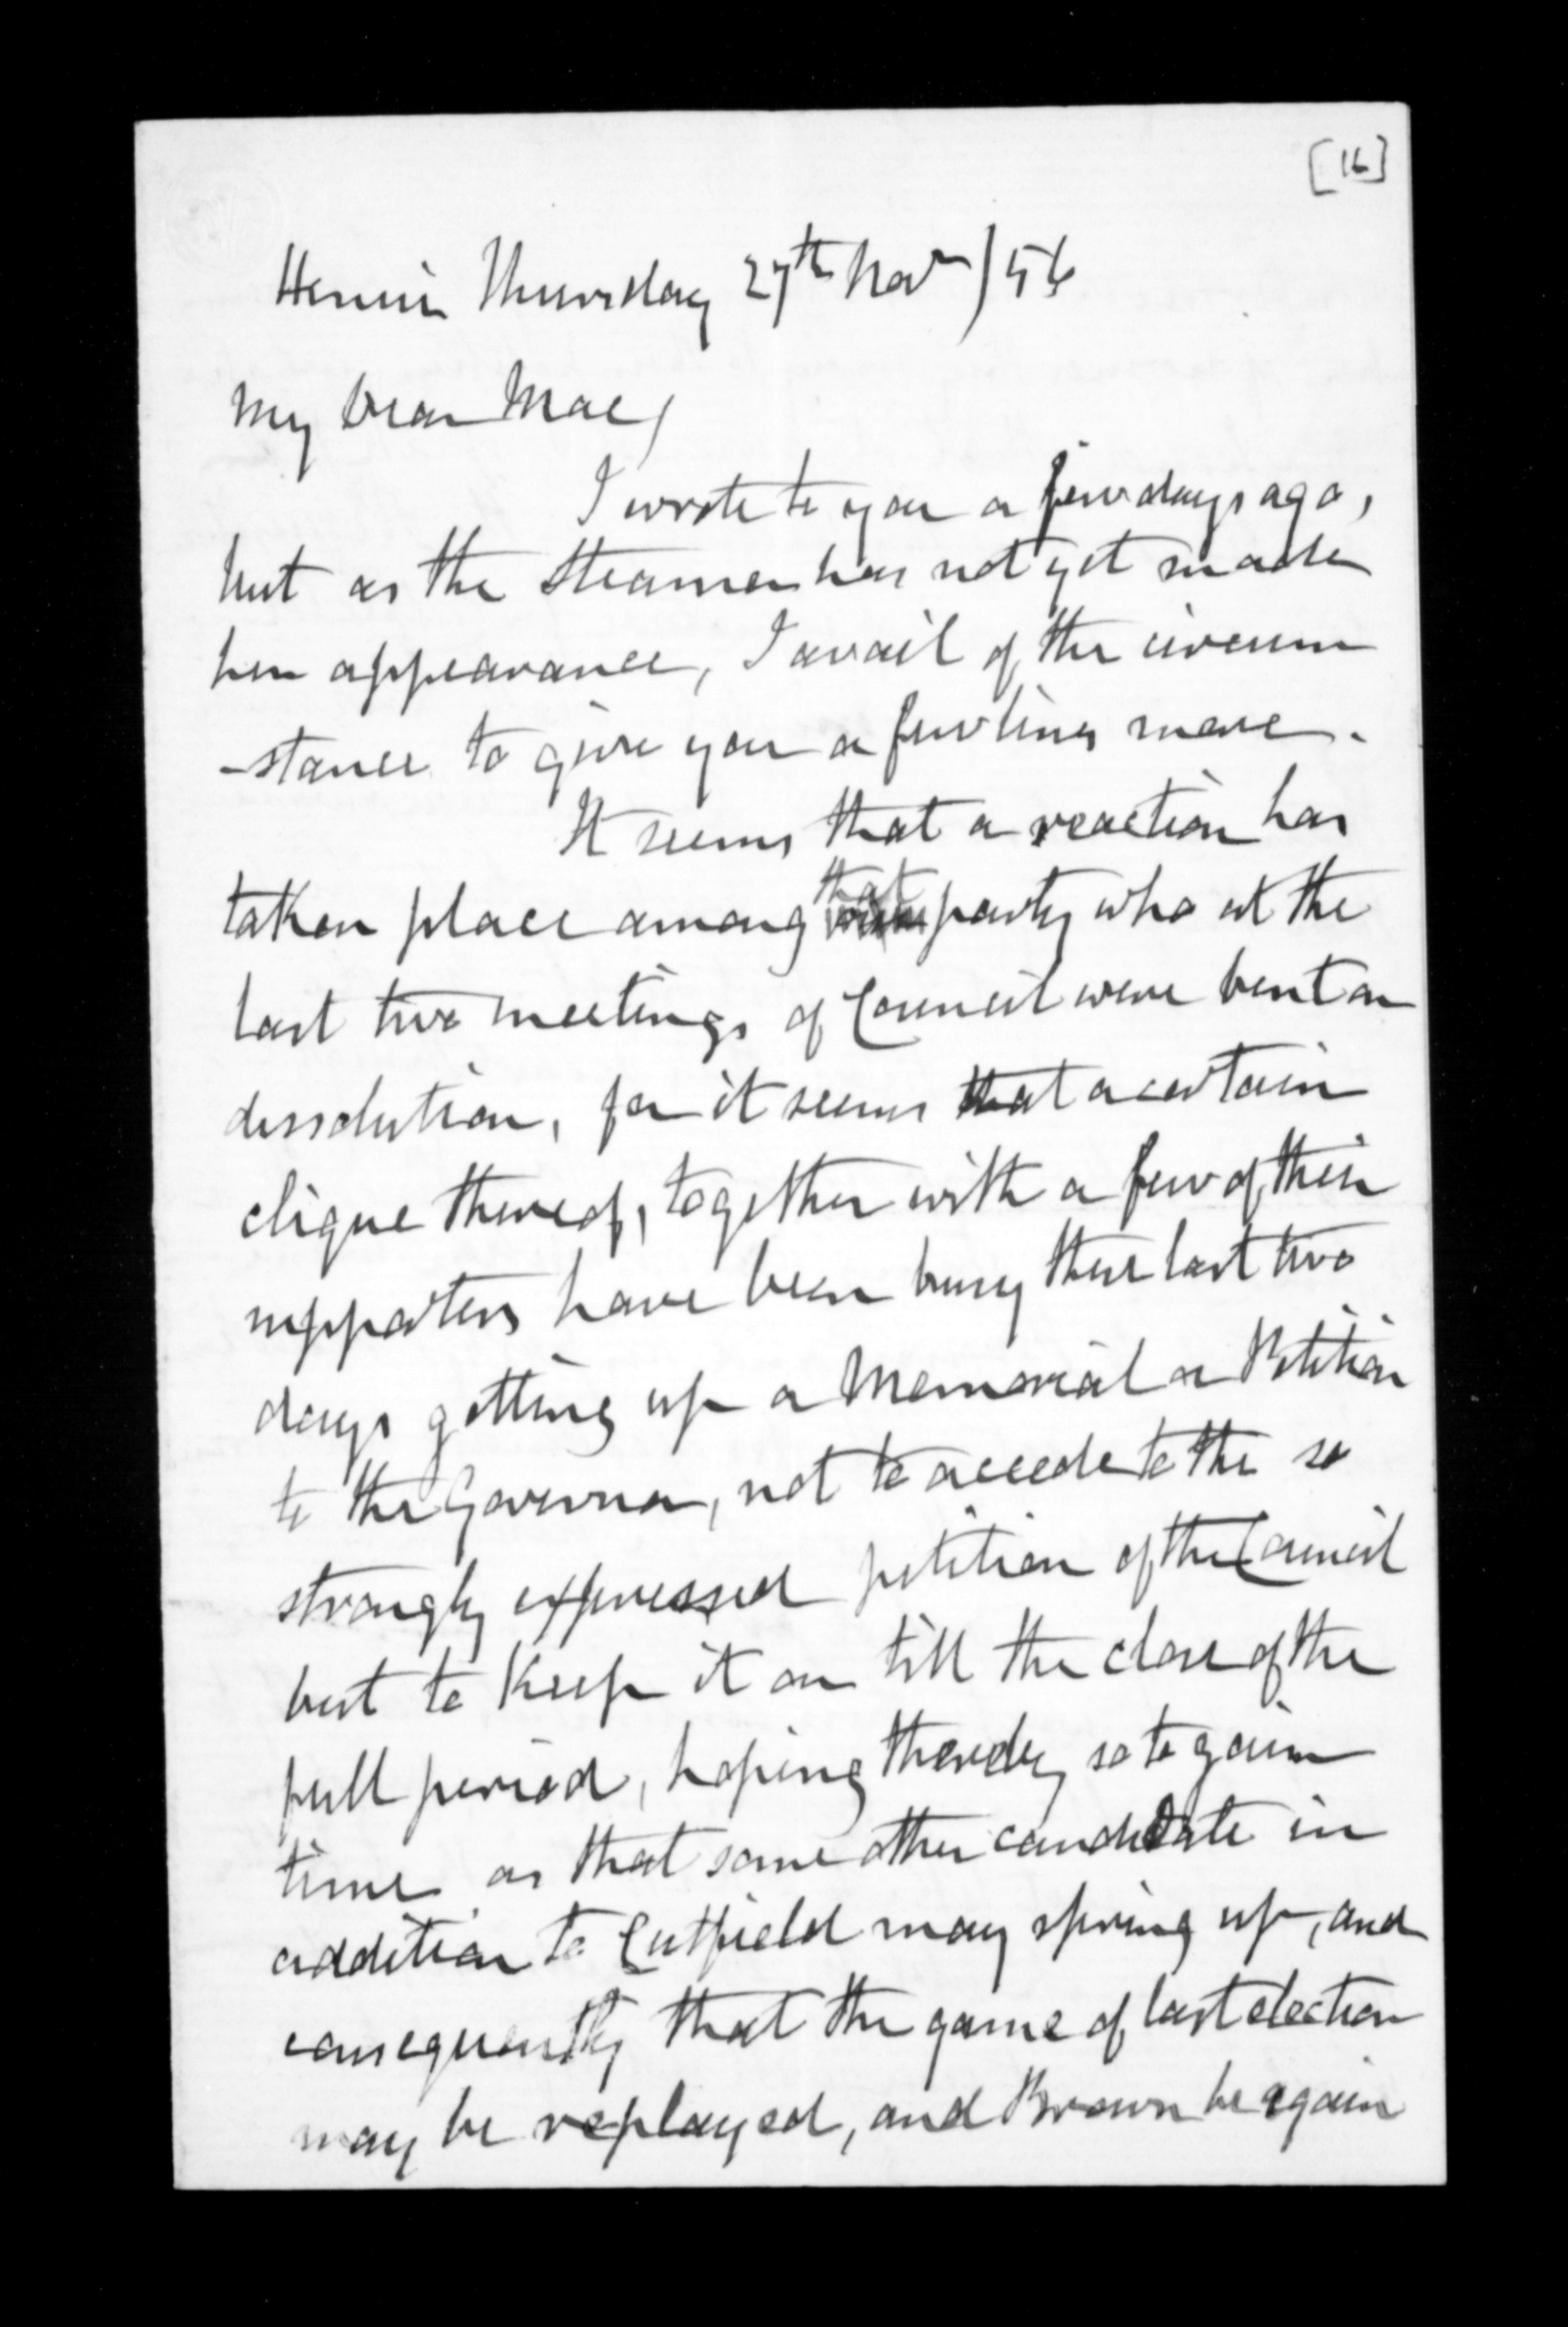 [16]
Henui Thursday 27th Novr /56
My Dear Mac,
I wrote to you a few days ago,
but as the Steamer has not yet made
her appearance, I avail of the circum
-stance to give you a few lines more.
It seems that a reaction has
taken place among that party who at the
last two meetings of Council were bent on
dissolution, for it seems that a certain
clique thereof, together with a few of their
supporters have been busy these last two
days getting up a Memorial or Petition
to the Governor, not to accede to the so
strongly expressed petition of the Council
but to Keep it on till the close of the
full period, hoping thereby so to gain
time as that some other candidate in
addition to Cutfield may spring up, and
consequently that the game of last election
may be replayed, and Brown be again